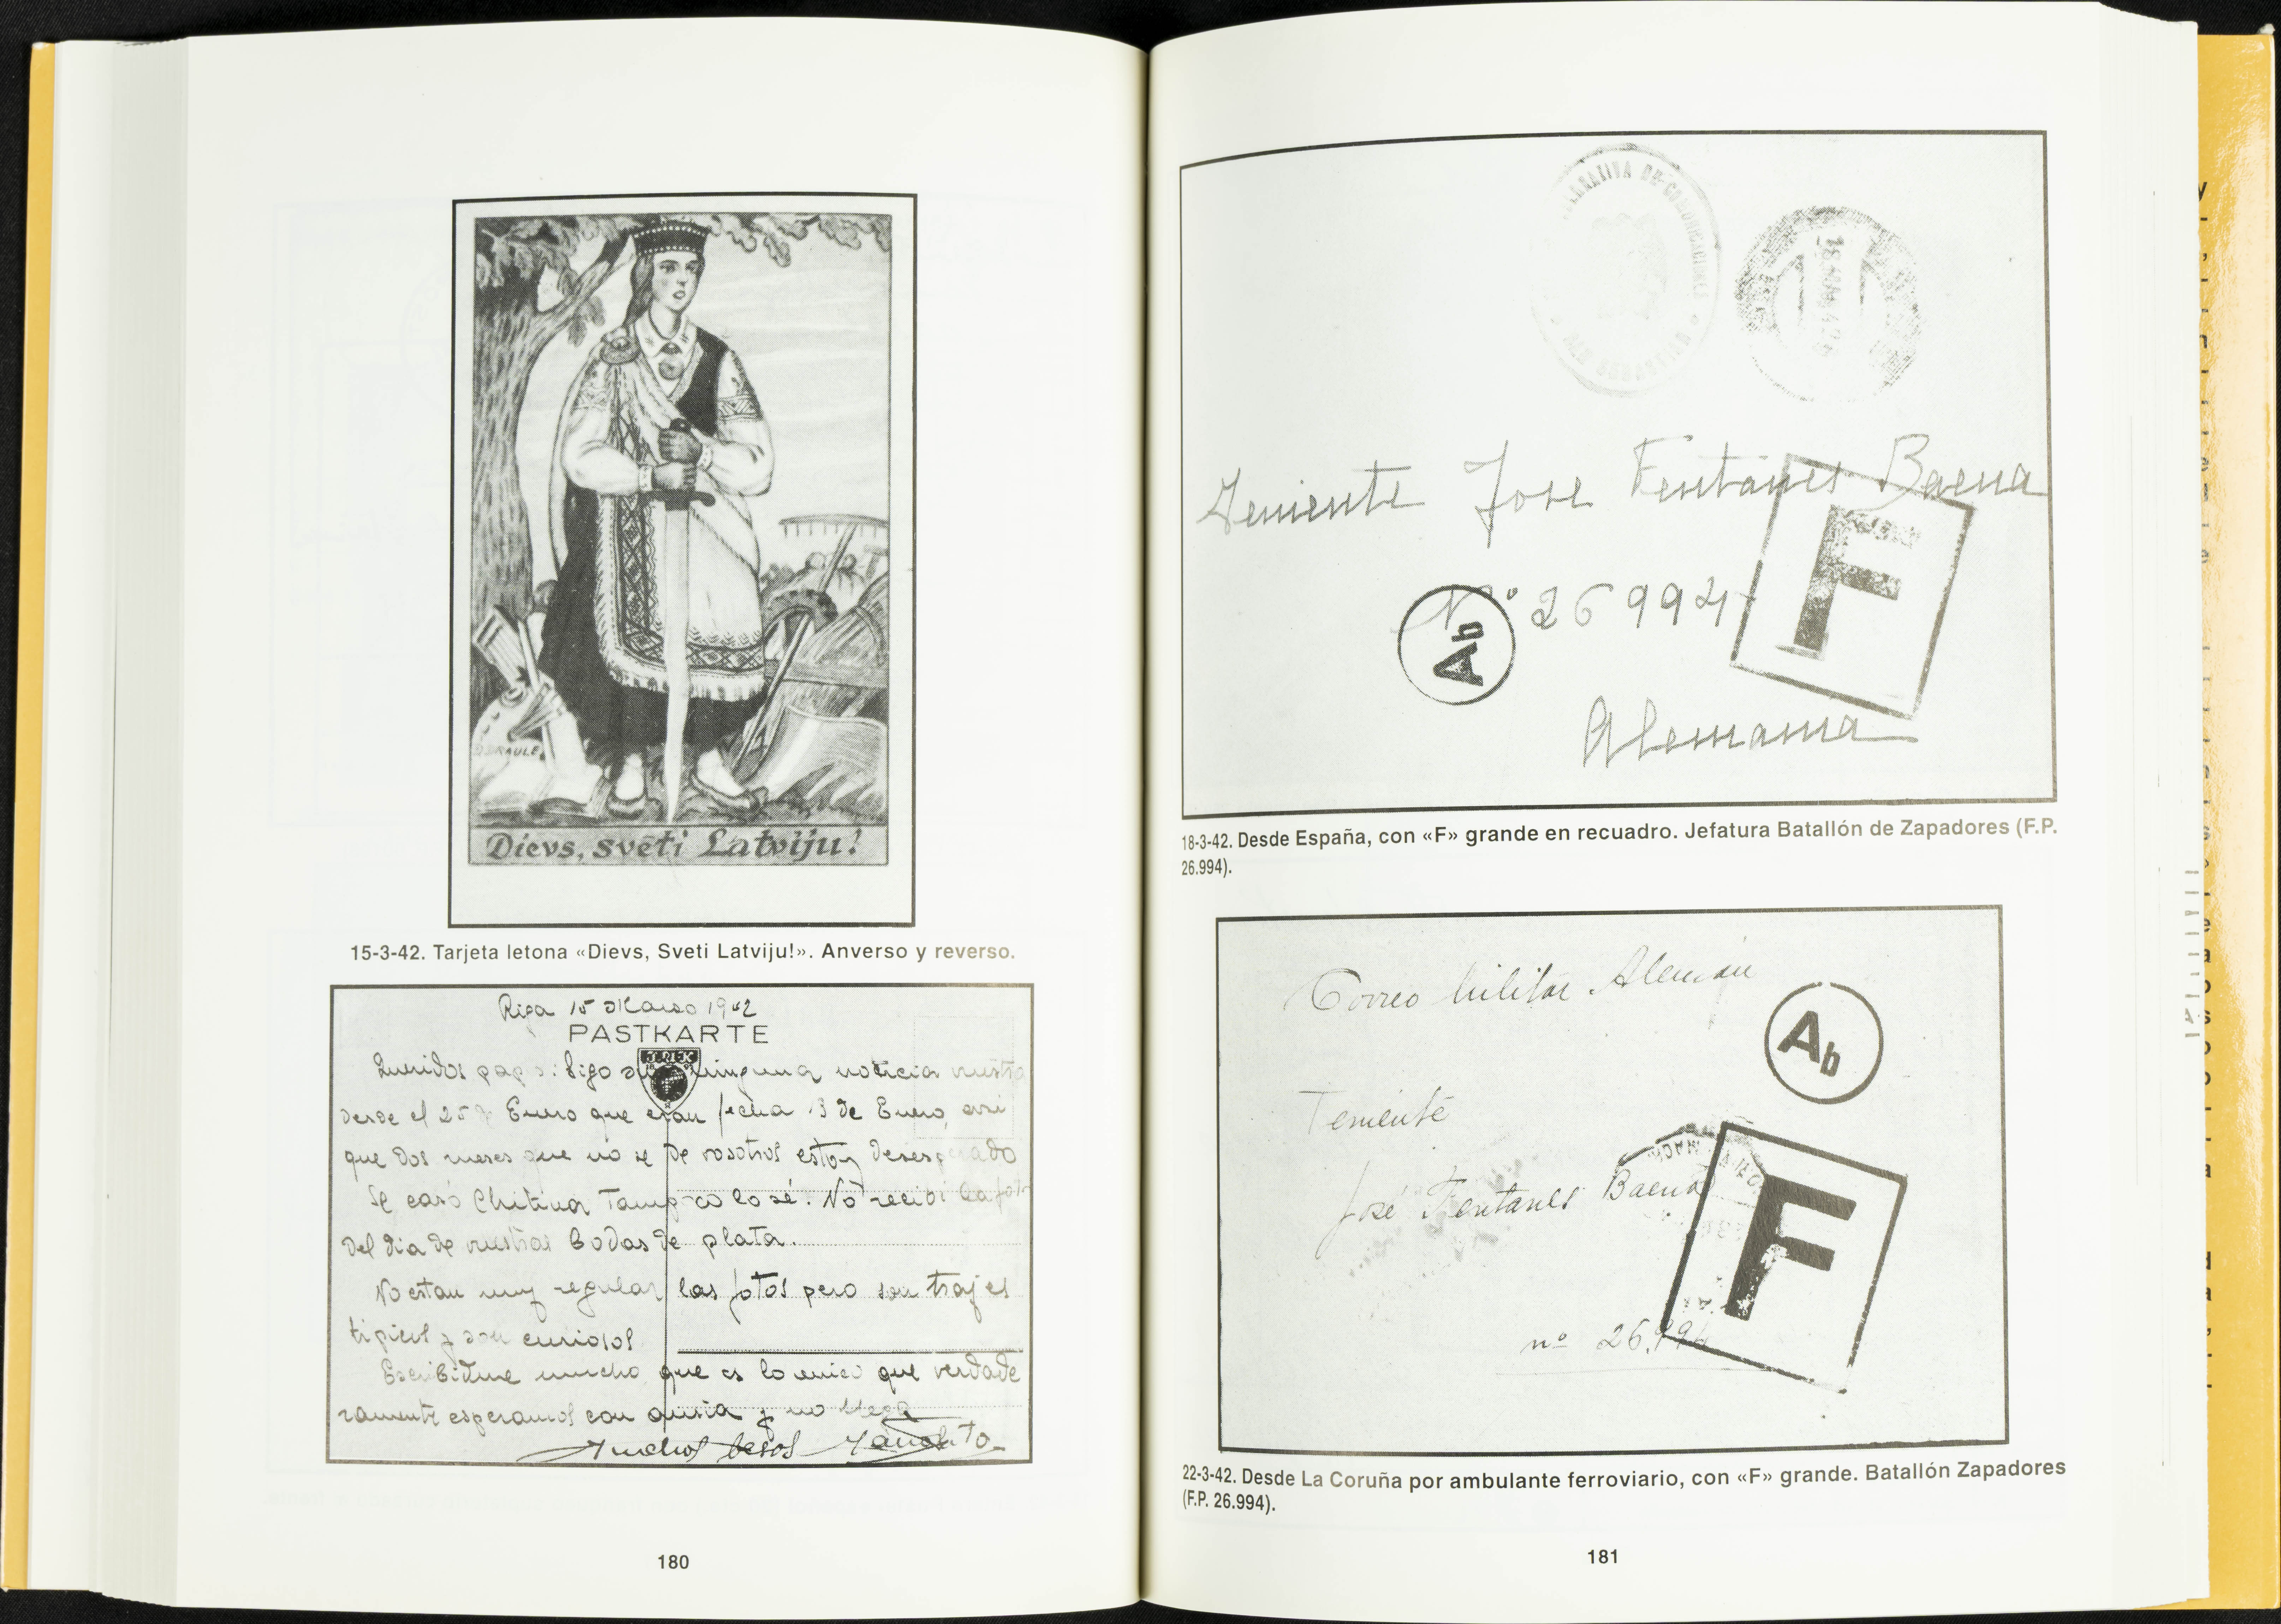 Dievs, svētī Latviju!
15-3-42. Tarjeta letona «Dievs, Sveti Latviju!». Anverso y reverso.
Riga 15 Marzo 1942
PASTKARTE
Queridos papás: Sigo sin ninguna noticia vuestra
desde el 25 de Enero que eran fecha 13 de Enero, asi
que dos meses que no se de vosotros estoy desesperado
Se casó Chitina Tampoco lo sé. No recibi la foto
del dia de vuestras bodas de plata.
No estan muy regular las fotos pero son trajes
tipicos y son curiosos
Escribidme mucho que es lo unico que verdade
ramente esperamos con ansia y no llega
Muchos besos
180
SAN SEBASTIAN
Teniente Jose Fentanes Baena
Nº 26994
Ab
F
Alemania
18-3-42. Desde España, con «F» grande en recuadro. Jefatura Batallón de Zapadores (F.P.
26.994).
Correo Militar Alemán
Ab
Teniente
José Fentanes Baena
F
nº 26.994
22-3-42. Desde La Coruña por ambulante ferroviario, con «F» grande. Batallón Zapadores
(F.P. 26.994).
181